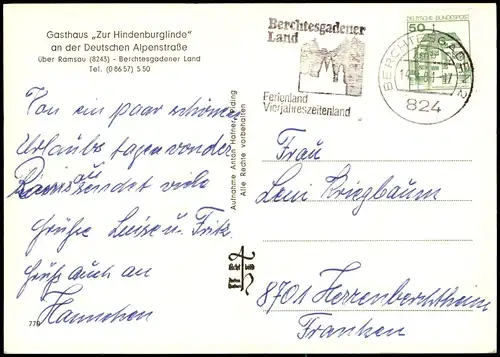 Gasthaus „Zur Hindenburglinde"
an der Deutschen Alpenstraße
über Ramsau (8243) - Berchtesgadener Land
Tel. (0 86 57) 5 50
Berchtesgadener
Land
Ferienland
Vierjahreszeitenland
DEUTSCHE BUNDESPOST
50
BERCHTESGADEN 2
824
Von ein paar schönen
Urlaubs tagen von der
aus sendet viele
Grüße Luise u. Fritz.
Grüß auch an
Hannchen
770
Aufnahme Anton Hafner, Piding
Alle Rechte vorbehalten
Frau
Leni Kriegbaum
8701 Herrenberchtheim
Franken